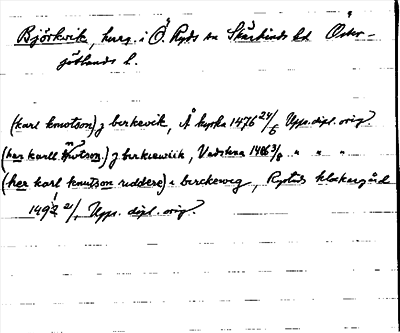 Björkvik, herrg. i Ö. Ryds sn Skärkinds hd Öster-
götlands l.
(karl knotson) j berkevik, Å kyrka 1476 24/6 Upps. dipl. orig.
(her karll knwtson.) j berkiewiik, Vadstena 1486 3/8 " " "
(her karl knutson riddere) i berckeweg, Rystads klockargård
1492 21/1 Upps. dipl. orig.